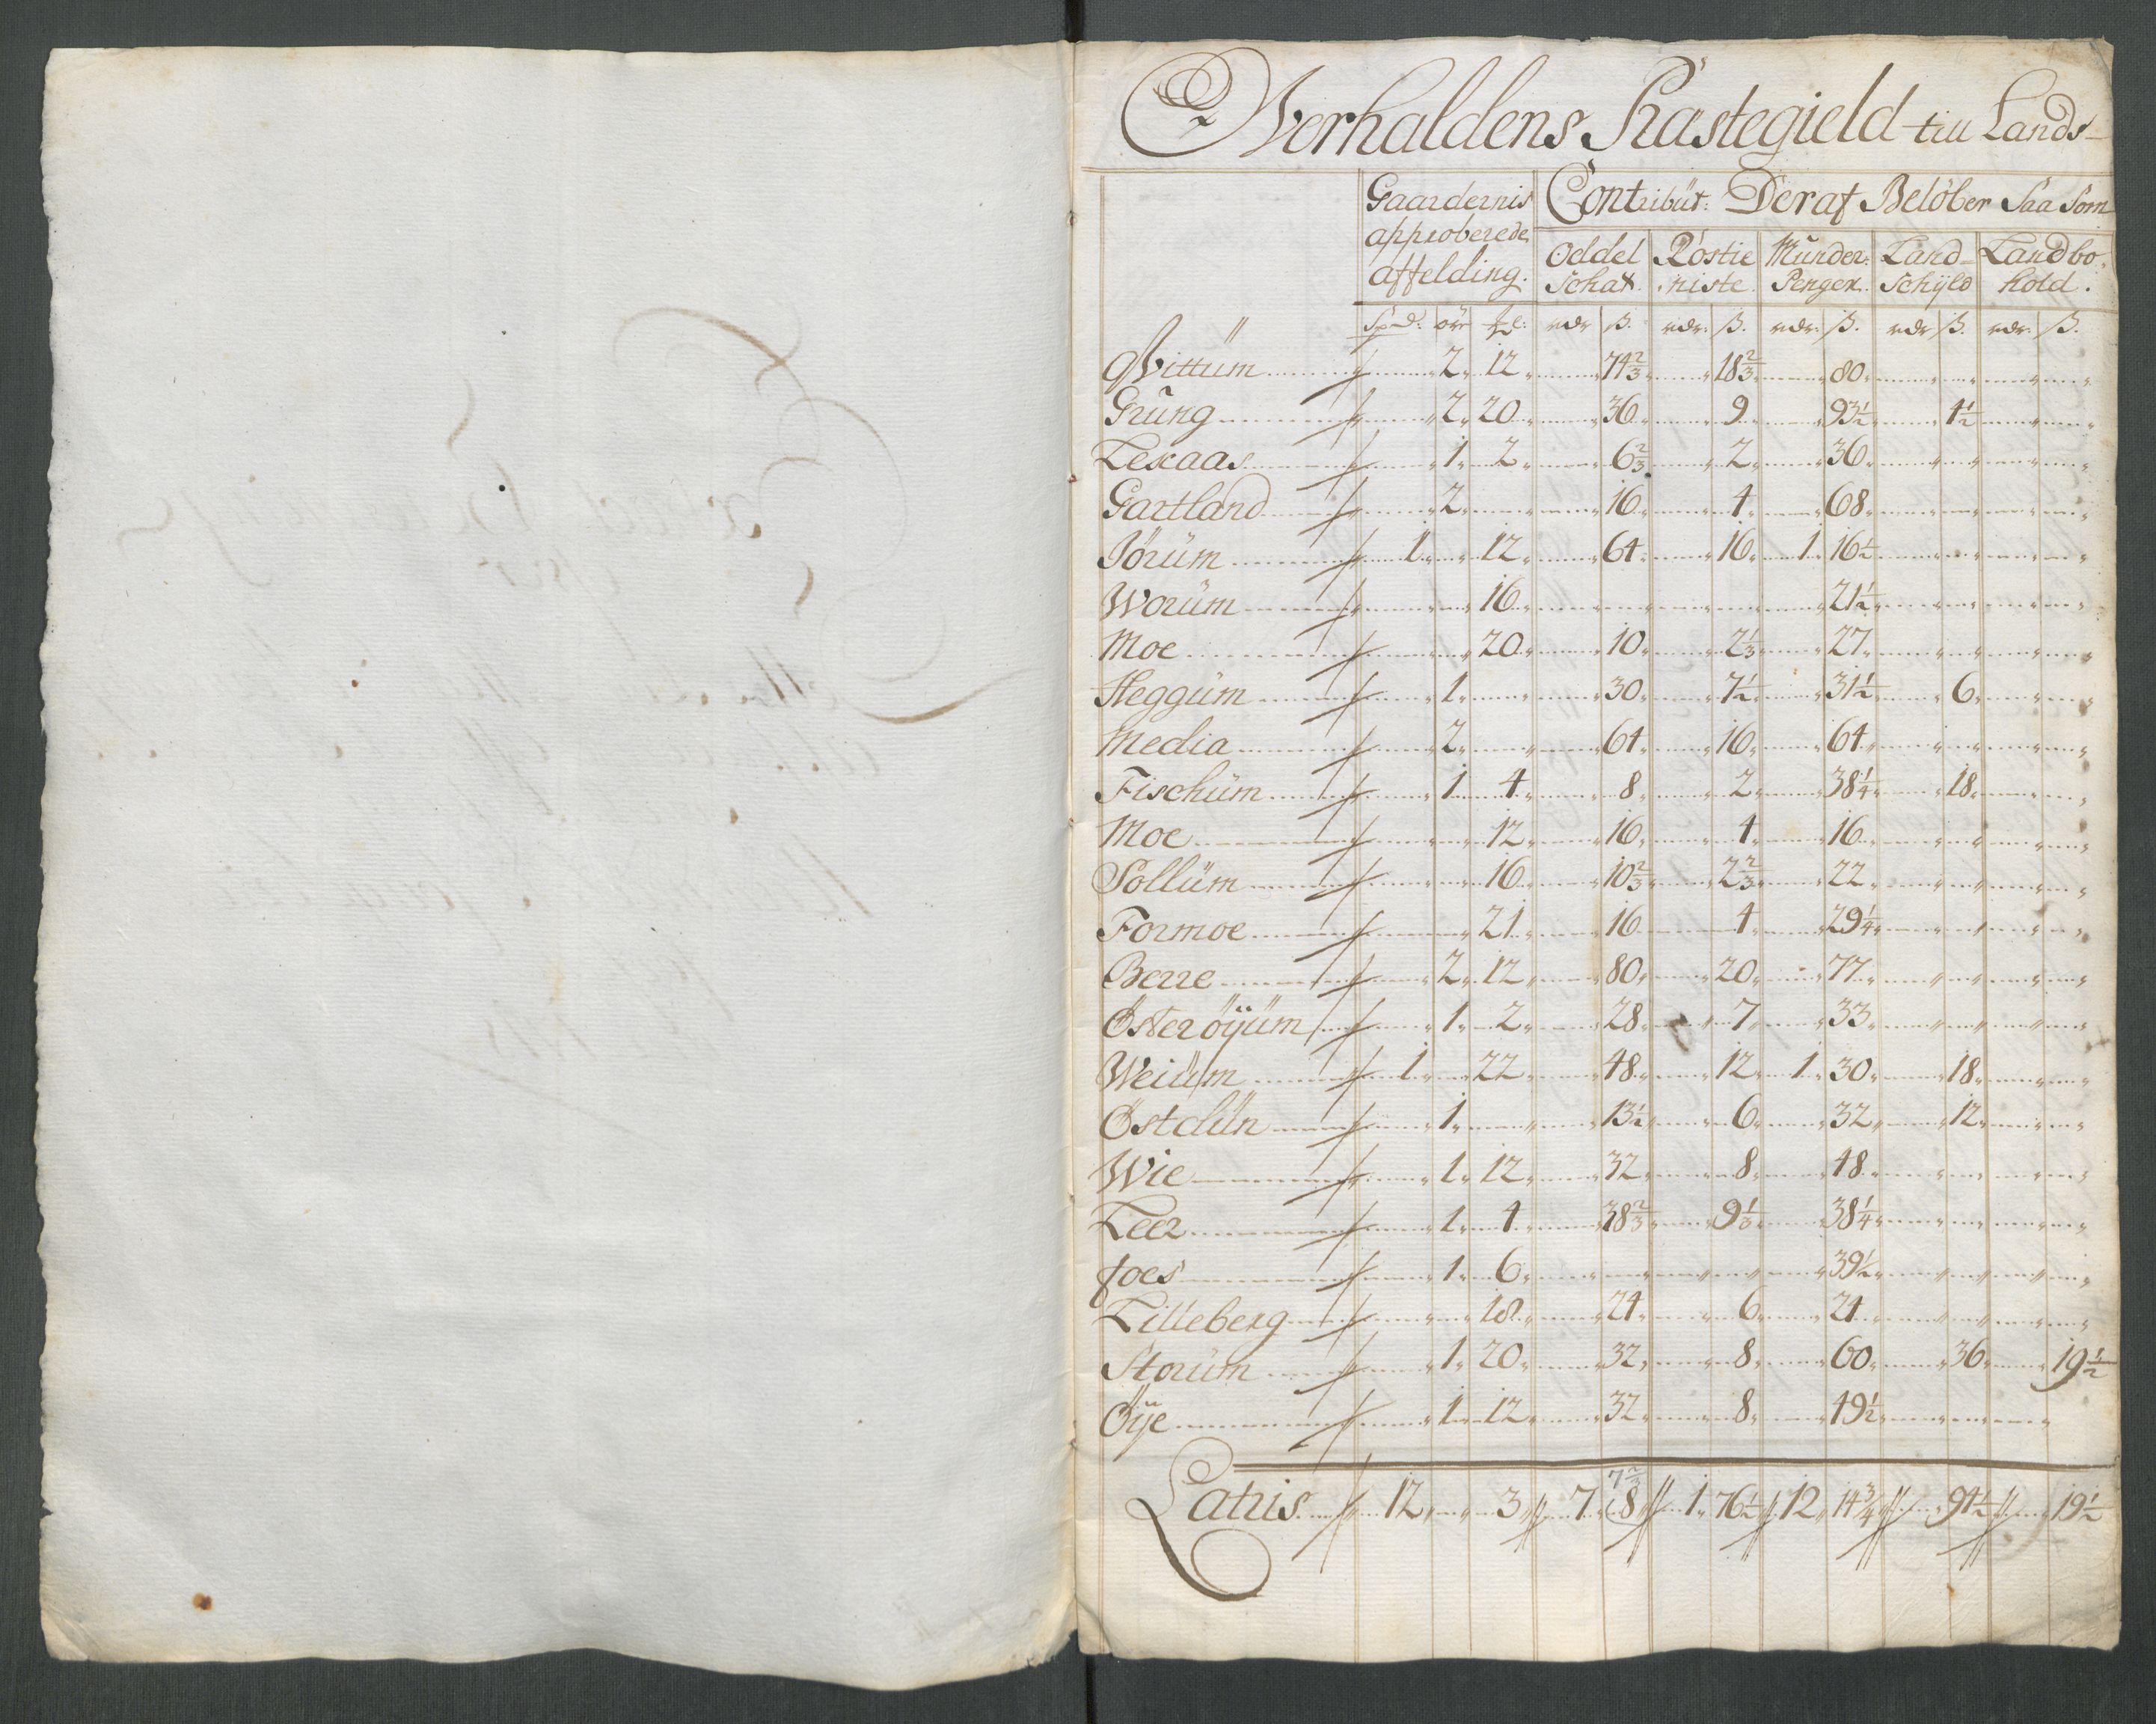 Overhaldens Præstegield till Lands-
Gaardernis approberede affelding. Contribüt: Deraf Beløber Saa Som
Oddel Schat. Rostieniste. Münder: Penger. Land-Schÿld Landbohold.
Spd: ör ml: rdr ß. rdr: ß. rdr: ß. rdr ß. rdr: ß.
Qvittüm 2 12 74 2/3 18 2/3 80
Grüng 2 20 36 9 93 1/2 4 1/2
Lexaas 1 2 6 2/3 2 36
Gartland 2 16 4 68
Jörüm 1 12 64 16 1 16 1/2
Worüm 16 21 1/2
Moe 20 10 2 1/3 27
Heggüm 1 30 7 1/2 31 1/2 6
Media 2 64 16 64
Fischüm 1 4 8 2 38 1/4 18
Moe 12 16 4 16
Sollüm 16 10 2/3 2 2/3 22
Formoe 21 16 4 29 1/4
Berre 2 12 80 20 77
Österöÿüm 1 2 28 7 33
Weiüm 1 22 48 12 1 30 18
Östdün 1 13 1/2 6 32 12
Wie 1 12 32 8 48
Leer 1 4 38 2/3 9 1/3 38 1/4
foes 1 6 39 1/2
Lilleberg 18 24 6 24
Storüm 1 20 32 8 60 36 19 1/2
Öÿe 1 12 32 8 49 1/2
7 2/3
Latris 12 3 7 8 1 76 1/2 12 14 3/4 94 1/2 19 1/2